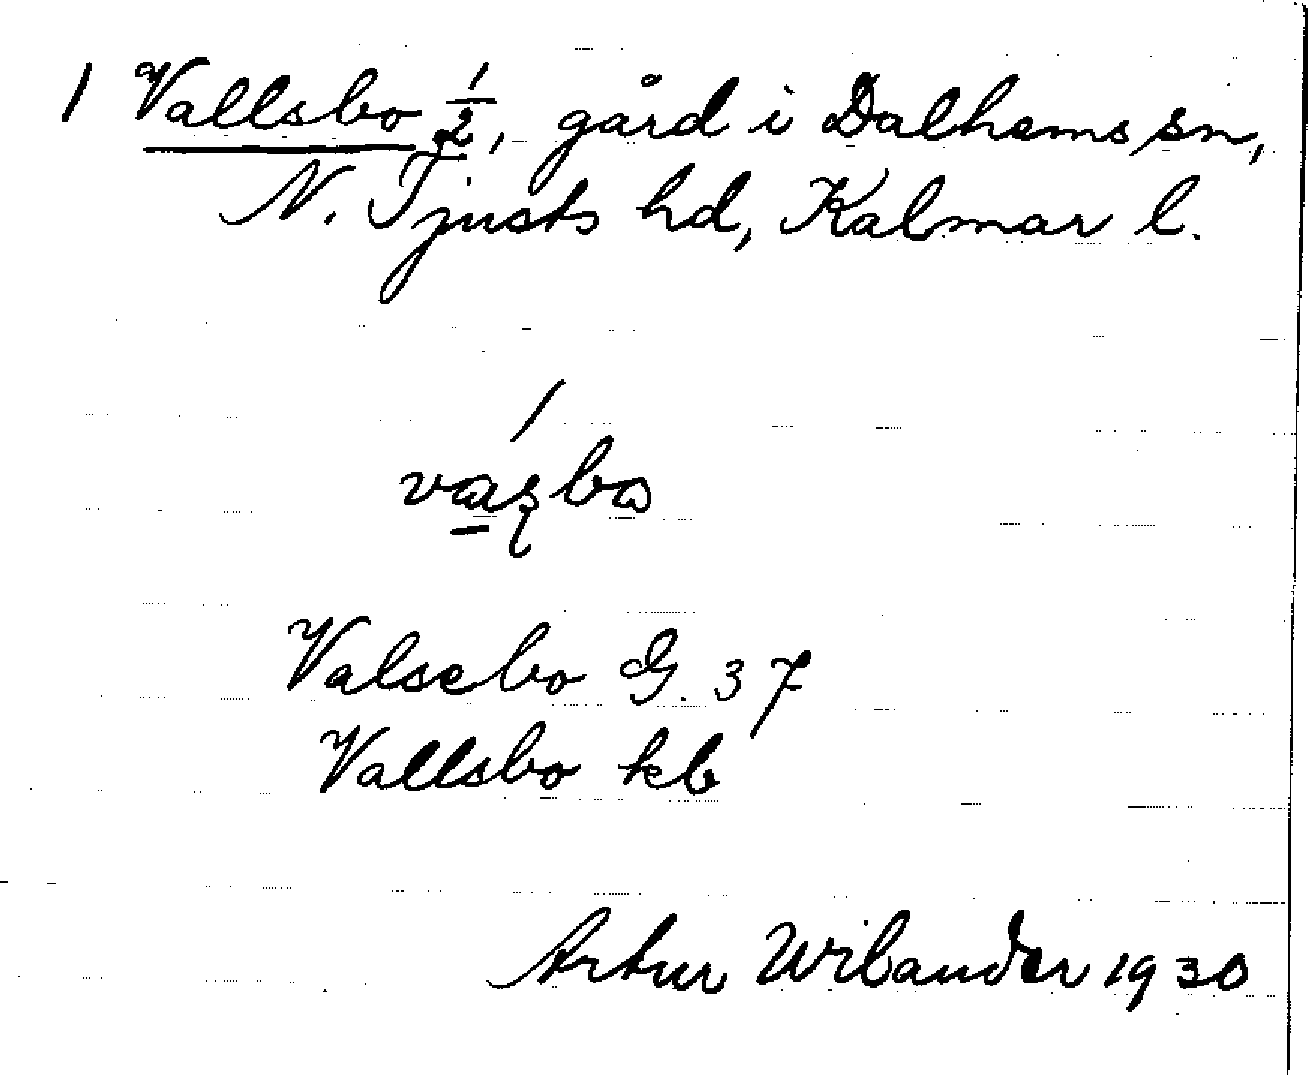 1 Vallsbo 1/2, gård i Dalhems sn,
N. Tjusts hd, Kalmar l.
/
vaʂbo
Valsebo G. 37
Vallsbo kb
Artur Wilander 1930